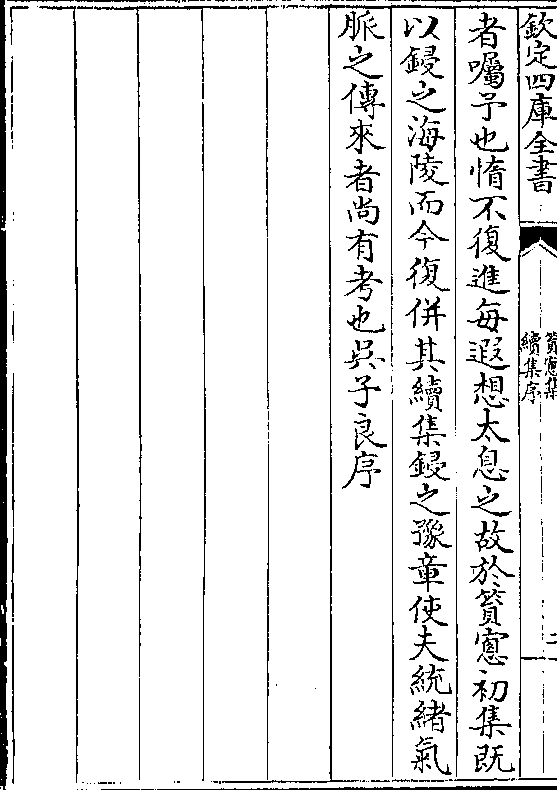 欽定四庫全書
篔窻集
續集序
二
者囑予也惰不復進每遐想太息之故於篔窻初集既
以鋟之海陵而今復併其續集鋟之豫章使夫統緒氣
脈之傳來者尚有考也吳子良序